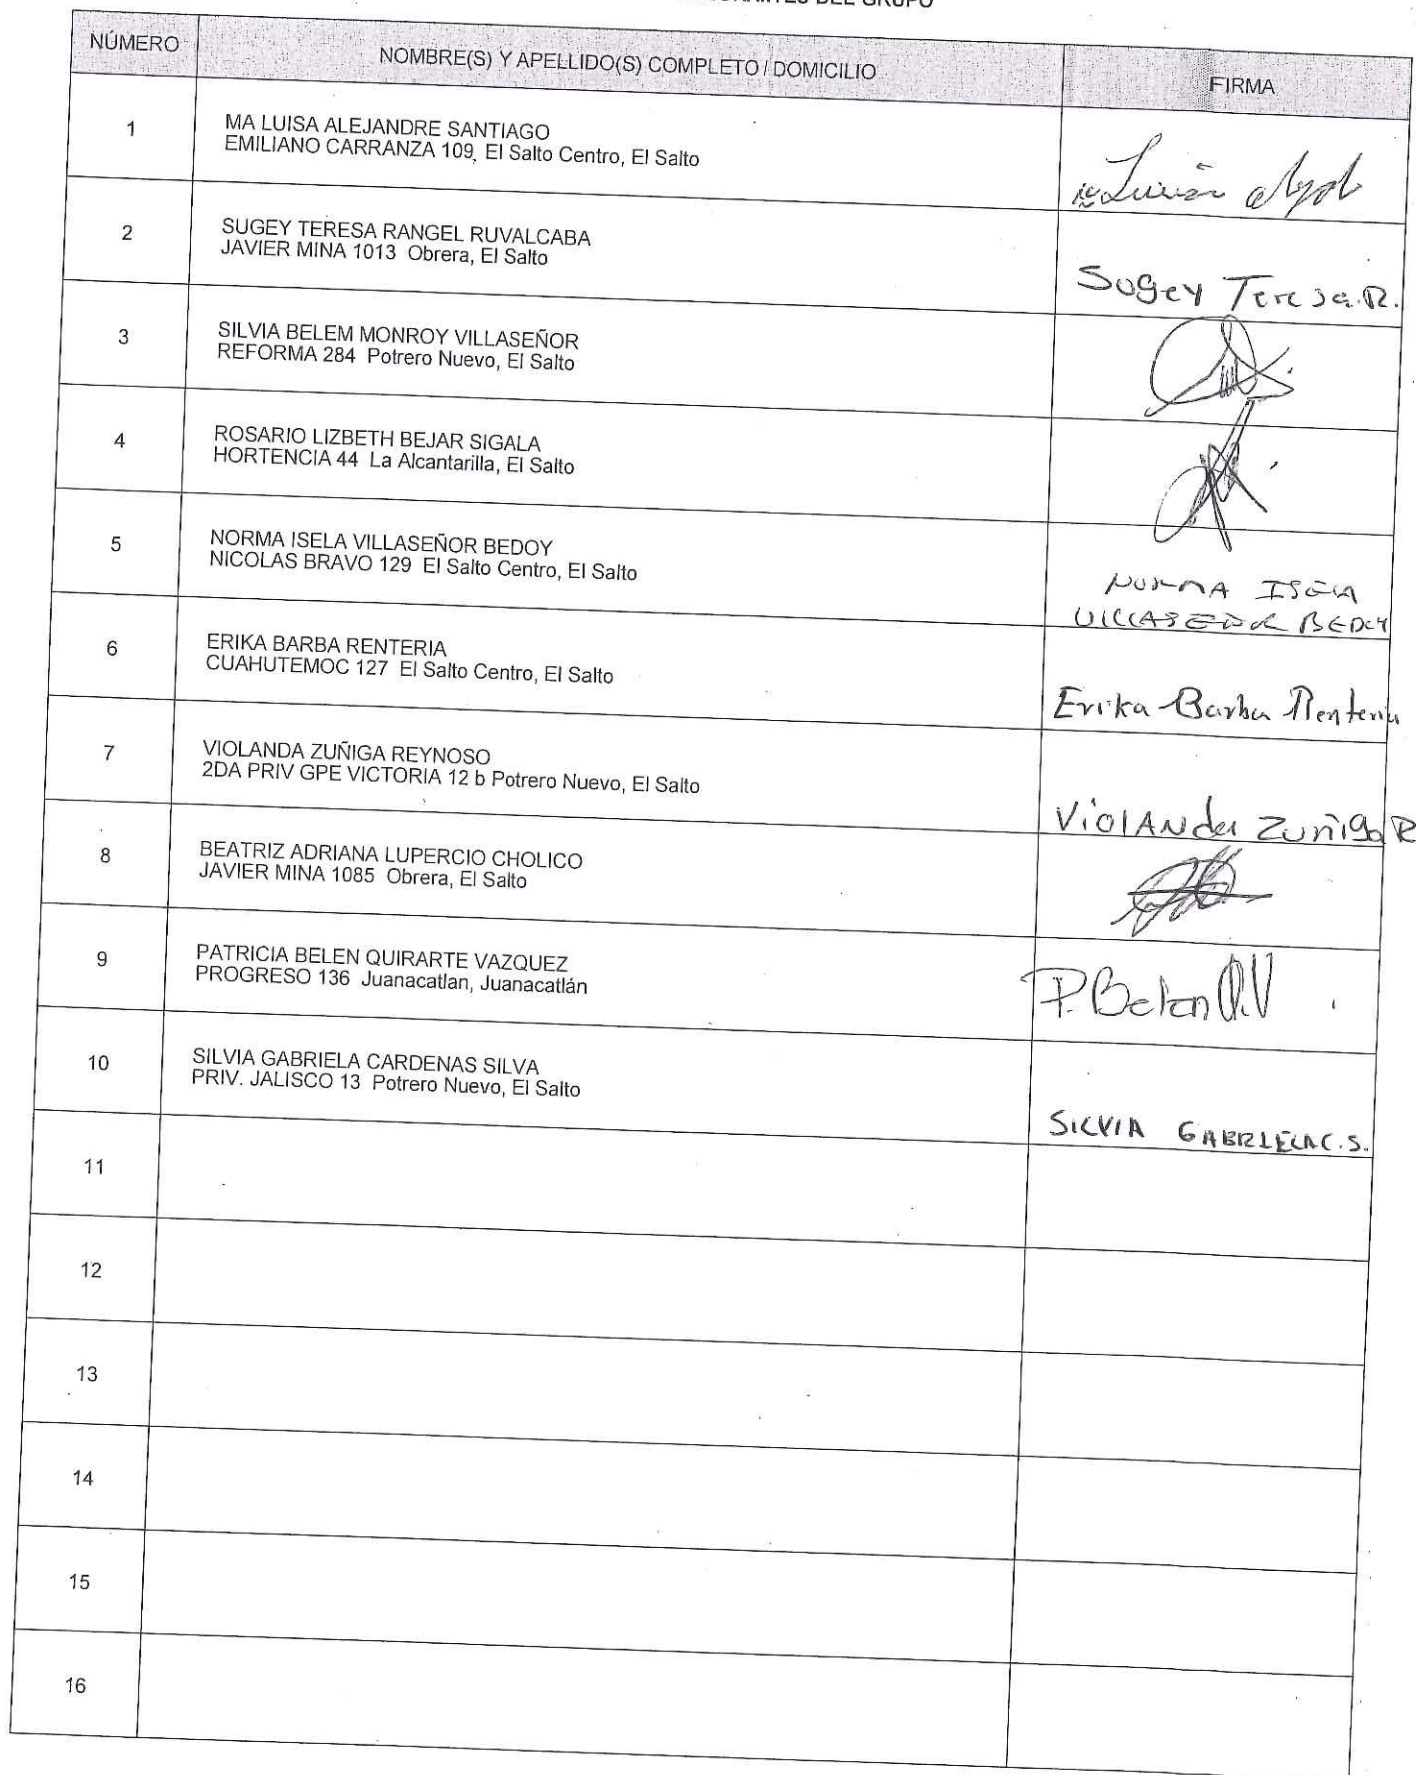 DEL GRUPO
NÚMERO
NOMBRE(S) Y APELLIDO(S) COMPLETO / DOMICILIO
FIRMA
1
MA LUISA ALEJANDRE SANTIAGO
EMILIANO CARRANZA 109, El Salto Centro, El Salto
Luisa
2
SUGEY TERESA RANGEL RUVALCABA
JAVIER MINA 1013 Obrera, El Salto
Sugey Teresa.R.
3
SILVIA BELEM MONROY VILLASEÑOR
REFORMA 284 Potrero Nuevo, El Salto
4
ROSARIO LIZBETH BEJAR SIGALA
HORTENCIA 44 La Alcantarilla, El Salto
5
NORMA ISELA VILLASEÑOR BEDOY
NICOLAS BRAVO 129 El Salto Centro, El Salto
NORMA ISELA
VILLASEÑOR BEDOY
6
ERIKA BARBA RENTERIA
CUAHUTEMOC 127 El Salto Centro, El Salto
Erika Barba Renteria
7
VIOLANDA ZUÑIGA REYNOSO
2DA PRIV GPE VICTORIA 12 b Potrero Nuevo, El Salto
ViolANda Zuñiga R
8
BEATRIZ ADRIANA LUPERCIO CHOLICO
JAVIER MINA 1085 Obrera, El Salto
9
PATRICIA BELEN QUIRARTE VAZQUEZ
PROGRESO 136 Juanacatlan, Juanacatlán
P. Belen Q.V
10
SILVIA GABRIELA CARDENAS SILVA
PRIV. JALISCO 13 Potrero Nuevo, El Salto
SILVIA GABRIELA C.S.
11
12
13
14
15
16